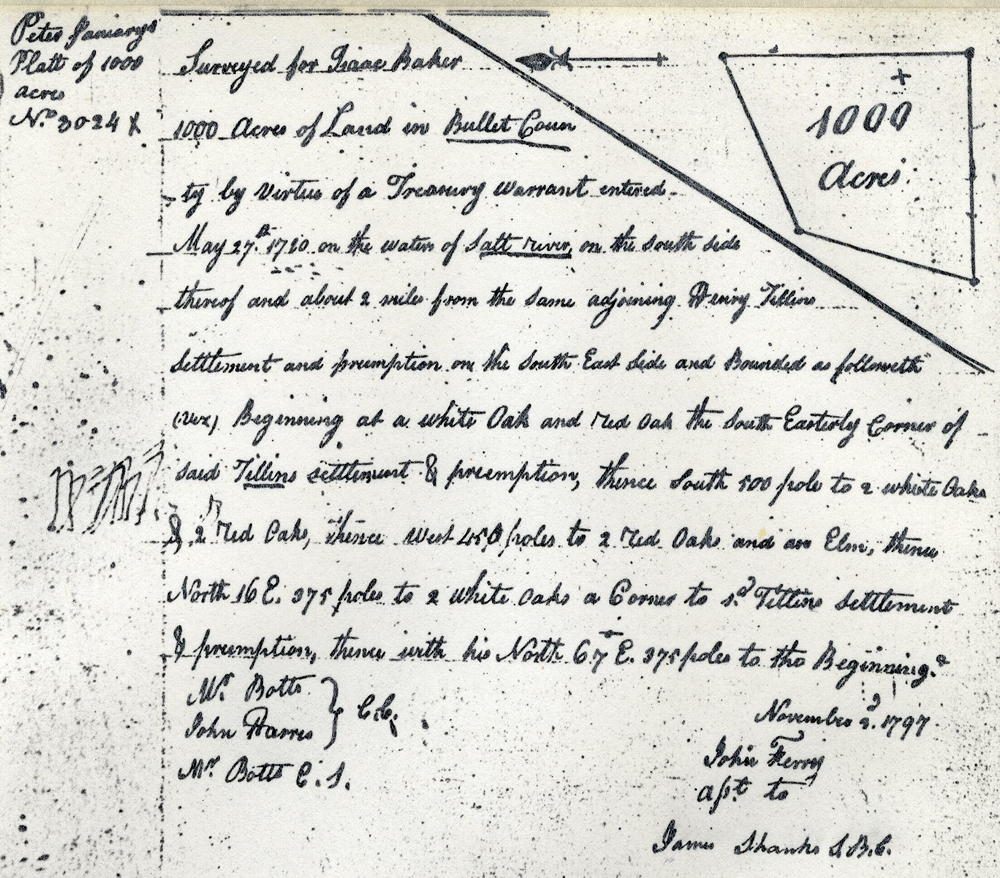 Peter Januarys
Platt of 1000
acres
No. 3024 X
Surveyed for Isaac Baker
1000 Acres of Land in Bullet Coun
ty by Virtue of a Treasury warrant entered
May 27.th 1780 on the waters of Salt river, on the South side
thereof and about 2 miles from the same adjoining Henry Tillins
Settlement and preemption on the South East Side and Bounded as followeth
(viz) Beginning at a white Oak and red Oak the South Easterly Corner of
said Tillins settlement & preemption, thence South 500 pole to 2 white Oaks
& 2 Red Oaks, thence West 450 poles to 2 Red Oaks and an Elm, thence
North 16 E. 375 poles to 2 white Oaks a Corner to sd. Tillins settlement
& preemption, thence with his North 67 E. 375 poles to the Beginning.
Mr. Botts
John Harris } C.C.
Mr. Botts C. S.
November 2d. 1797
John Ferry
apt. to
James Shanks S.B.C.
1000
Acres